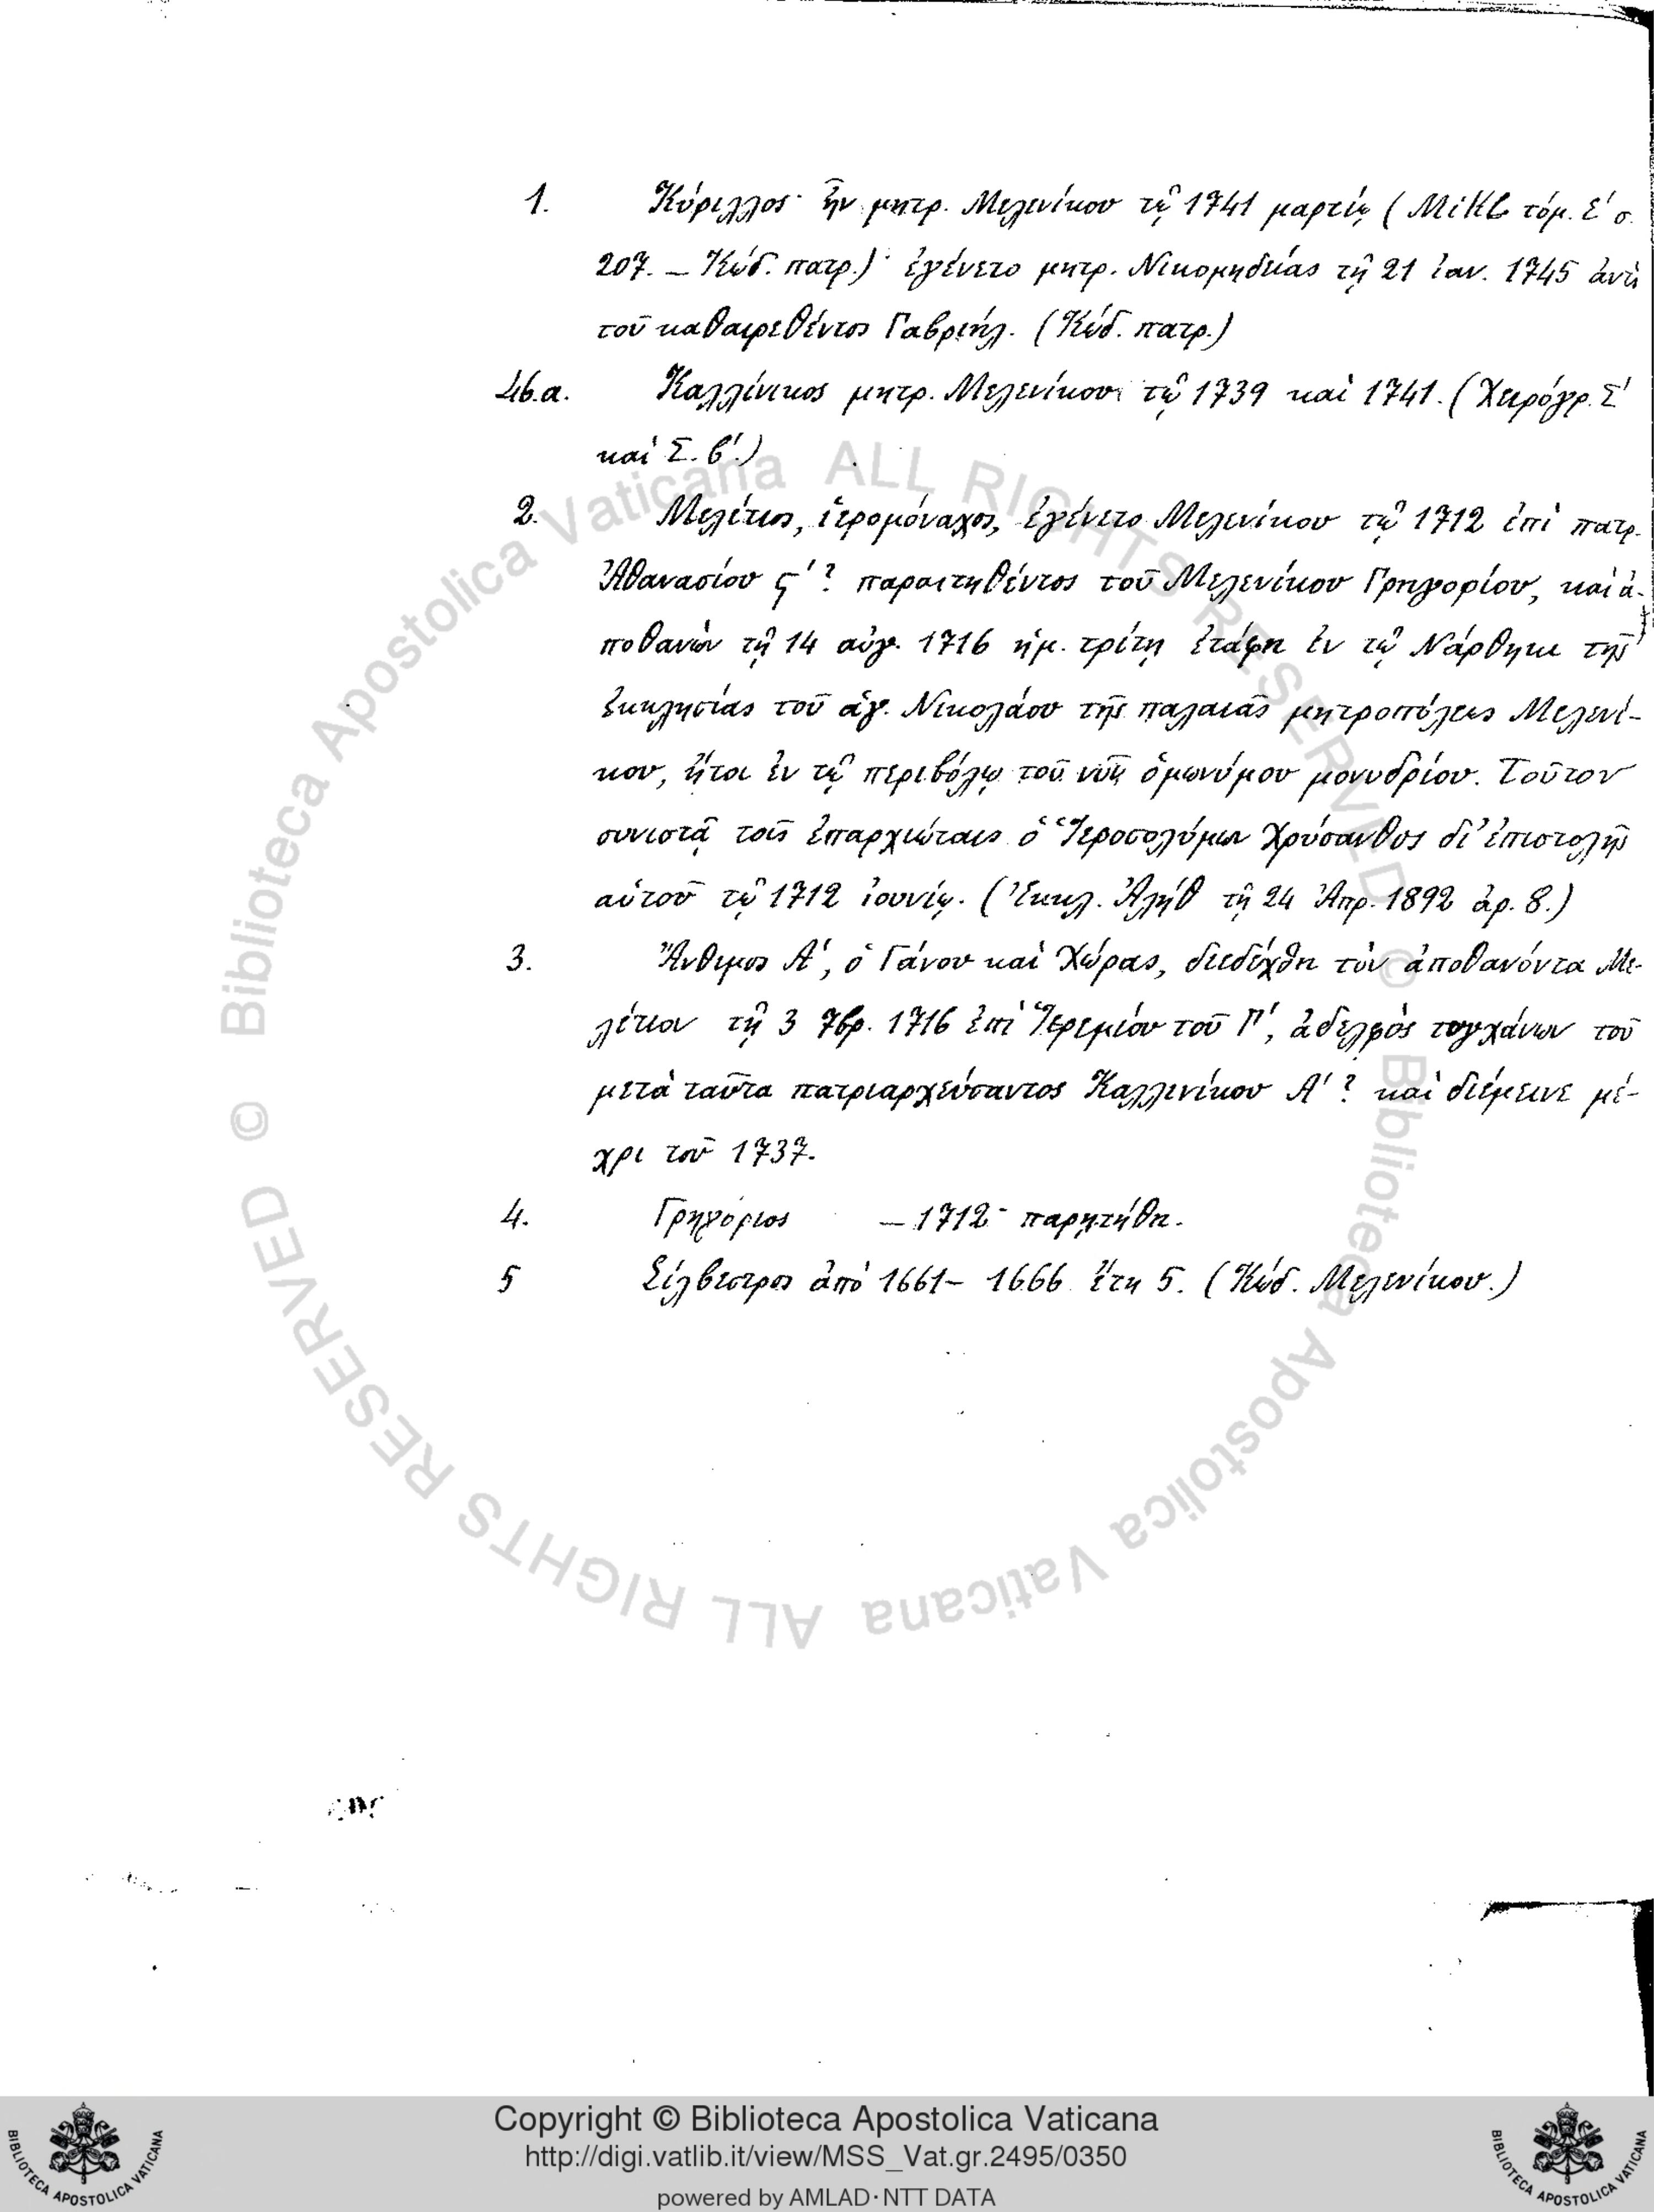 1. Κύριλλος· ἦν μητρ. Μελενίκου τῷ 1741 μαρτίῳ (Mikl τόμ. Ε΄ σ.
207. – Κώδ. πατρ.)· ἐγένετο μητρ. Νικομηδείας τῇ 21 ἰαν. 1745 ἀντὶ
τοῦ καθαιρεθέντος Γαβριήλ. (Κώδ. πατρ.)
46.α. Καλλίνικος μητρ. Μελενίκου τῷ 1739 καὶ 1741. (Χειρόγρ. Σ΄
καὶ Σ. β΄.)
2. Μελέτιος, ἱερομόναχος, ἐγένετο Μελενίκου τῷ 1712 ἐπὶ πατρ.
Ἀθανασίου ς΄? παραιτηθέντος τοῦ Μελενίκου Γρηγορίου, καὶ ἀ-
ποθανὼν τῇ 14 αὐγ. 1716 ἡμ. τρίτῃ ἐτάφη ἐν τῷ Νάρθηκι τῆς
ἐκκλησίας τοῦ ἁγ. Νικολάου τῆς παλαιᾶς μητροπόλεως Μελενί-
κου, ἤτοι ἐν τῷ περιβόλῳ τοῦ νῦν ὁμωνύμου μονυδρίου. Τοῦτον
συνιστᾷ τοῖς ἐπαρχιώταις ὁ Ἱεροσολύμων Χρύσανθος δι' ἐπιστολῆς
αὐτοῦ τῷ 1712 ἰουνίῳ. (Ἐκκλ. Ἀλήθ τῇ 24 Ἀπρ. 1892 ἀρ. 8.)
3. Ἄνθιμος Α΄, ὁ Γάνου καὶ Χώρας, διεδέχθη τὸν ἀποθανόντα Με-
λέτιον τῇ 3 7βρ. 1716 ἐπὶ Ἱερεμίου τοῦ Γ΄, ἀδελφὸς τυγχάνων τοῦ
μετὰ ταῦτα πατριαρχεύσαντος Καλλινίκου Α΄? καὶ διέμεινε μέ-
χρι τοῦ 1737.
4. Γρηγόριος – 1712· παρῃτήθη.
5 Σίλβεστρος ἀπὸ 1661 – 1666 ἔτη 5. (Κώδ. Μελενίκου.)
© Biblioteca Apostolica Vaticana ALL RIGHTS RESERVED © Biblioteca Apostolica Vaticana ALL RIGHTS RESERVED
BIBLIOTECA APOSTOLICA VATICANA
Copyright © Biblioteca Apostolica Vaticana
http://digi.vatlib.it/view/MSS_Vat.gr.2495/0350
powered by AMLAD·NTT DATA
BIBLIOTECA APOSTOLICA VATICANA